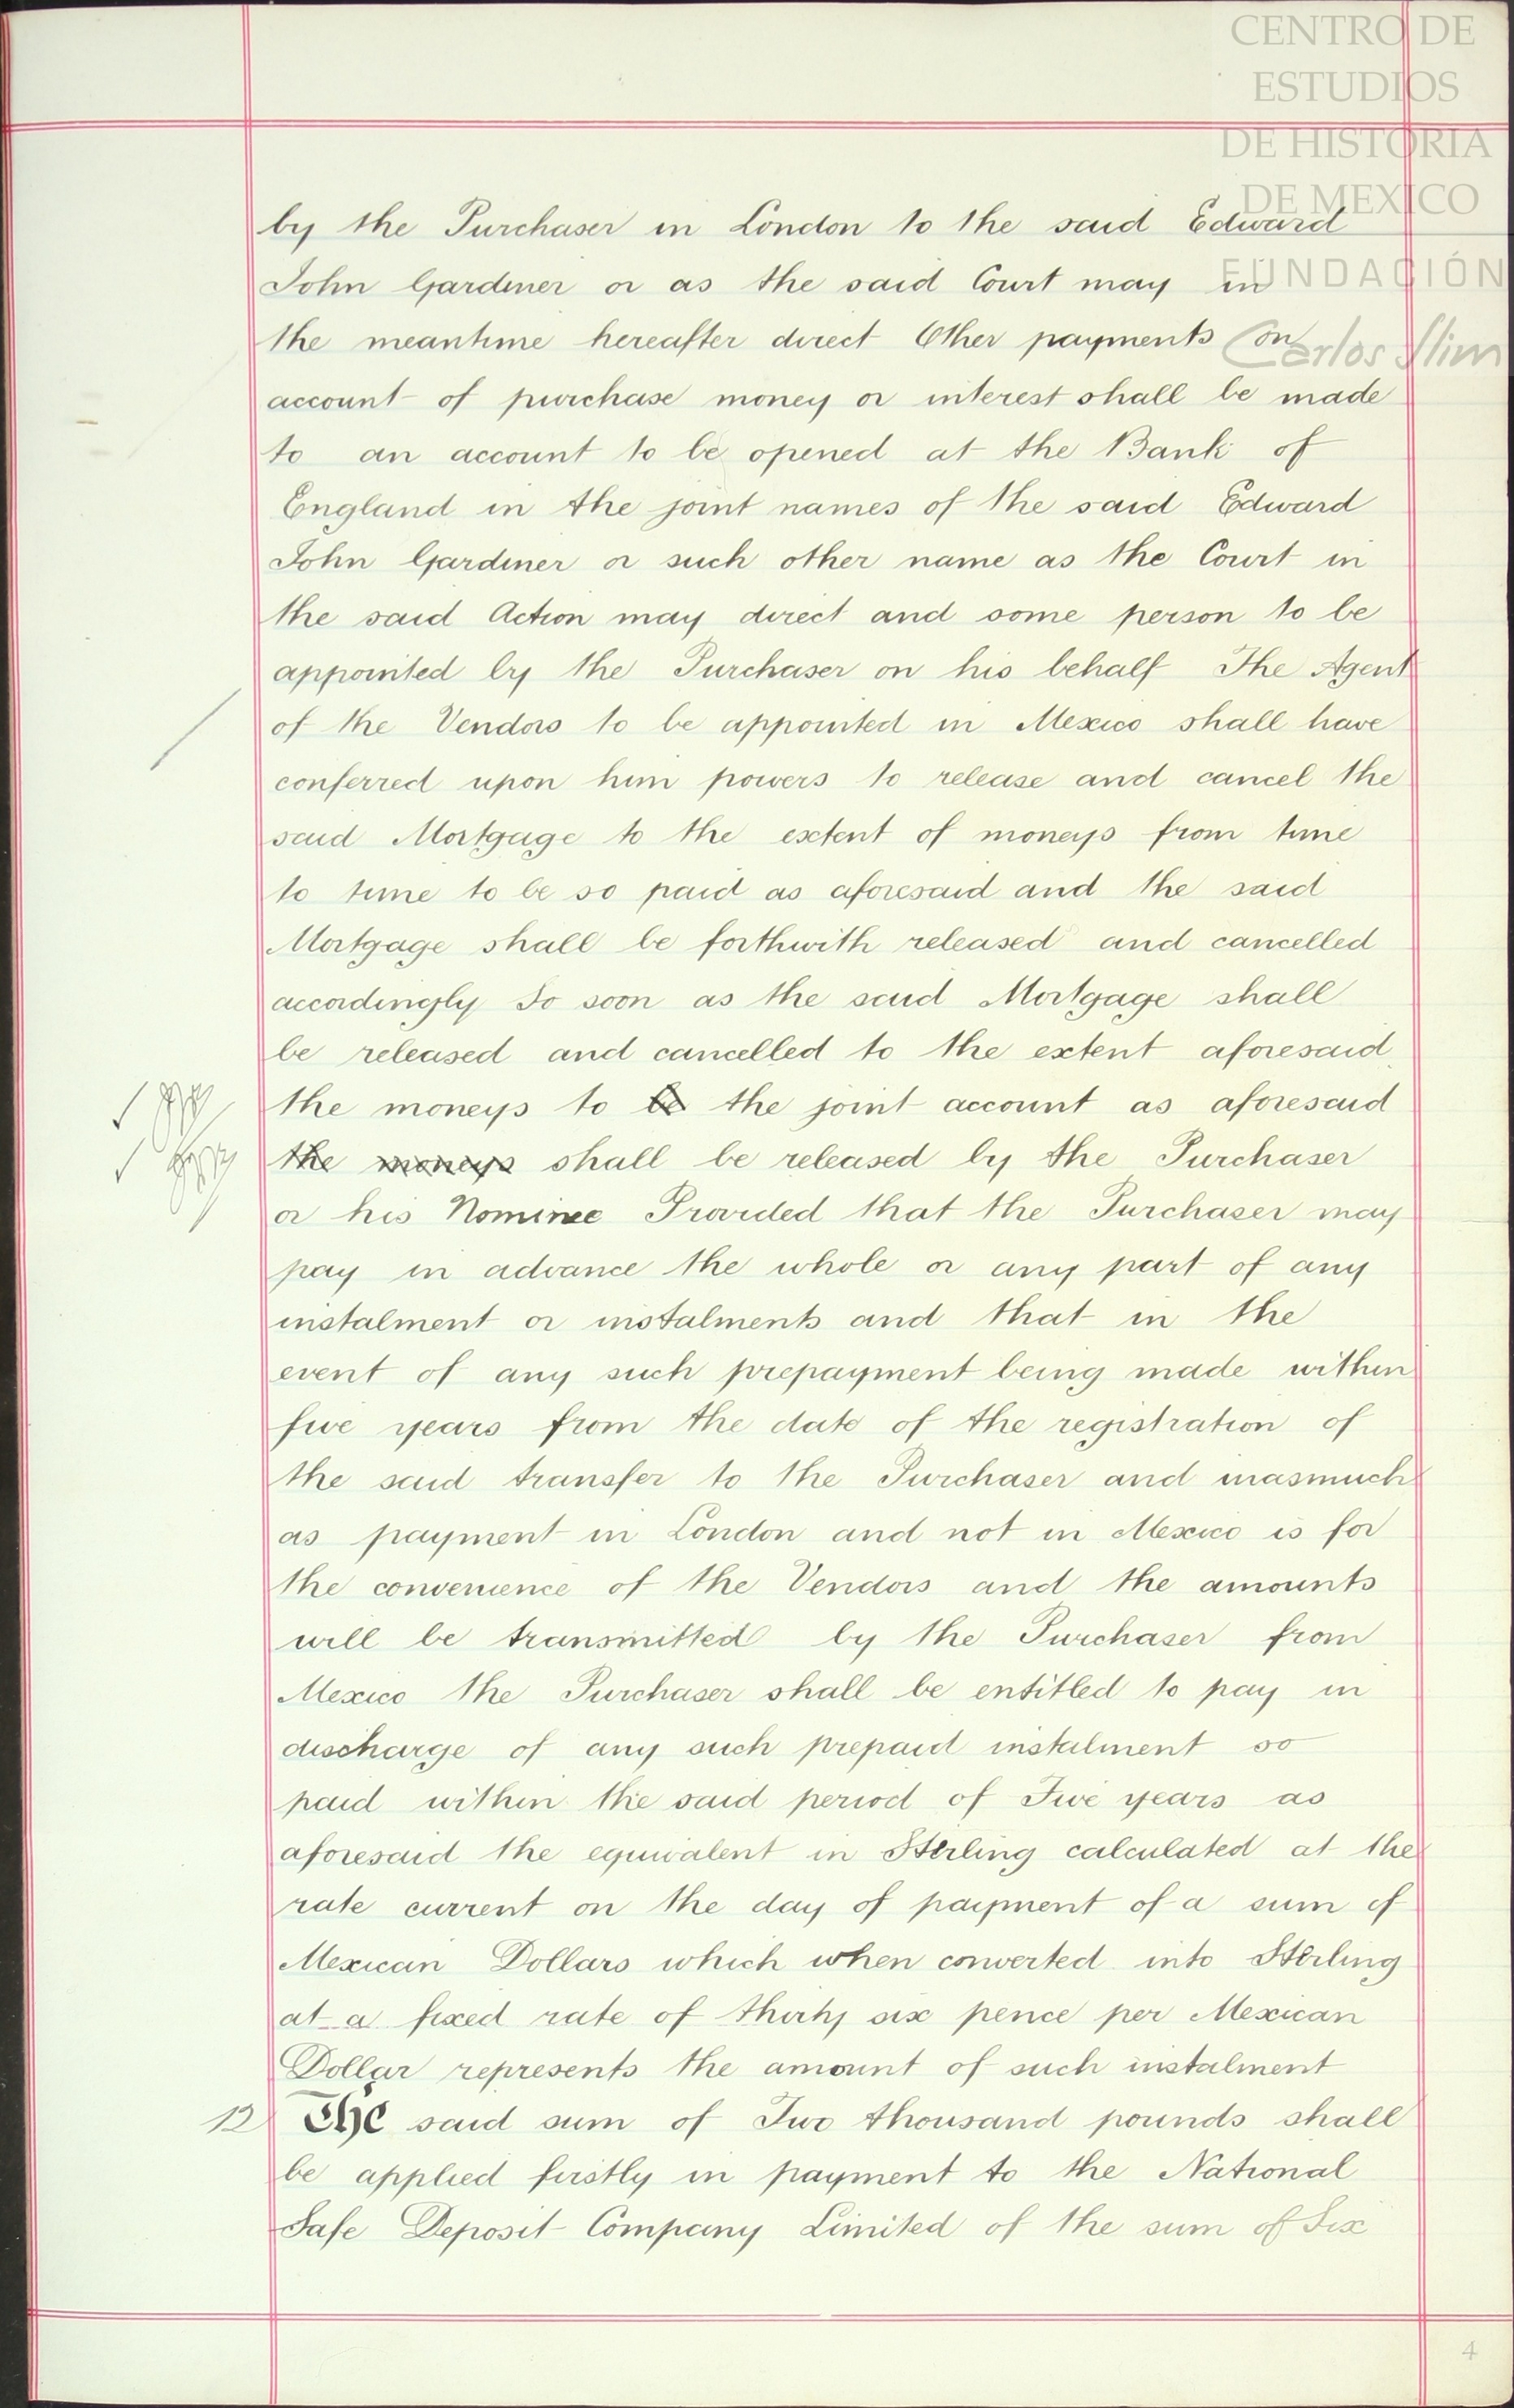 CENTRO DE
ESTUDIOS
DE HISTORIA
DE MEXICO
FUNDACIÓN
Carlos Slim
by the Purchaser in London to the said Edward
John Gardiner or as the said Court may in
the meantime hereafter direct Other payments on
account of purchase money or interest shall be made
to an account to be opened at the Bank of
England in the joint names of the said Edward
John Gardiner or such other name as the Court in
the said Action may direct and some person to be
appointed by the Purchaser on his behalf The Agent
of the Vendors to be appointed in Mexico shall have
conferred upon him powers to release and cancel the
said Mortgage to the extent of moneys from time
to time to be so paid as aforesaid and the said
Mortgage shall be forthwith released and cancelled
accordingly So soon as the said Mortgage shall
be released and cancelled to the extent aforesaid
the moneys to be the joint account as aforesaid
the moneys shall be released by the Purchaser
or his Nominee Provided that the Purchaser may
pay in advance the whole or any part of any
instalment or instalments and that in the
event of any such prepayment being made within
five years from the date of the registration of
the said transfer to the Purchaser and inasmuch
as payment in London and not in Mexico is for
the convenience of the Vendors and the amounts
will be transmitted by the Purchaser from
Mexico the Purchaser shall be entitled to pay in
discharge of any such prepaid instalment so
paid within the said period of Five years as
aforesaid the equivalent in Sterling calculated at the
rate current on the day of payment of a sum of
Mexican Dollars which when converted into Sterling
at a fixed rate of thirty six pence per Mexican
Dollar represents the amount of such instalment
12 The said sum of Two thousand pounds shall
be applied firstly in payment to the National
Safe Deposit Company Limited of the sum of Six
4